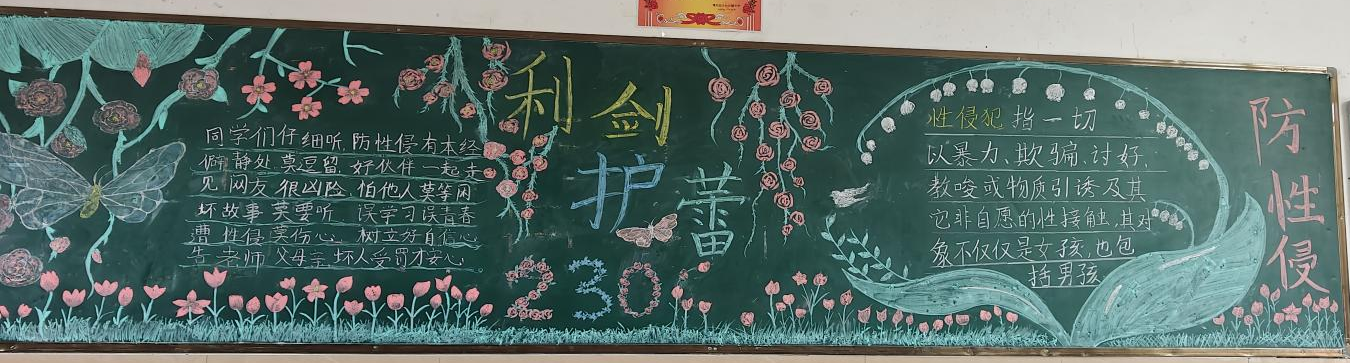 同学们仔细听 防性侵有本经
僻静处莫逗留 好伙伴一起走
见网友很凶险 陌他人莫等闲
坏故事莫要听 误学习误青春
遭性侵莫伤心 树立好自信心
告老师父母亲 坏人受罚才安心
利剑
护蕾
230
性侵犯指一切
以暴力、欺骗、讨好、
教唆或物质引诱及其
它非自愿的性接触,其对
象不仅仅是女孩,也包
括男孩
防性侵